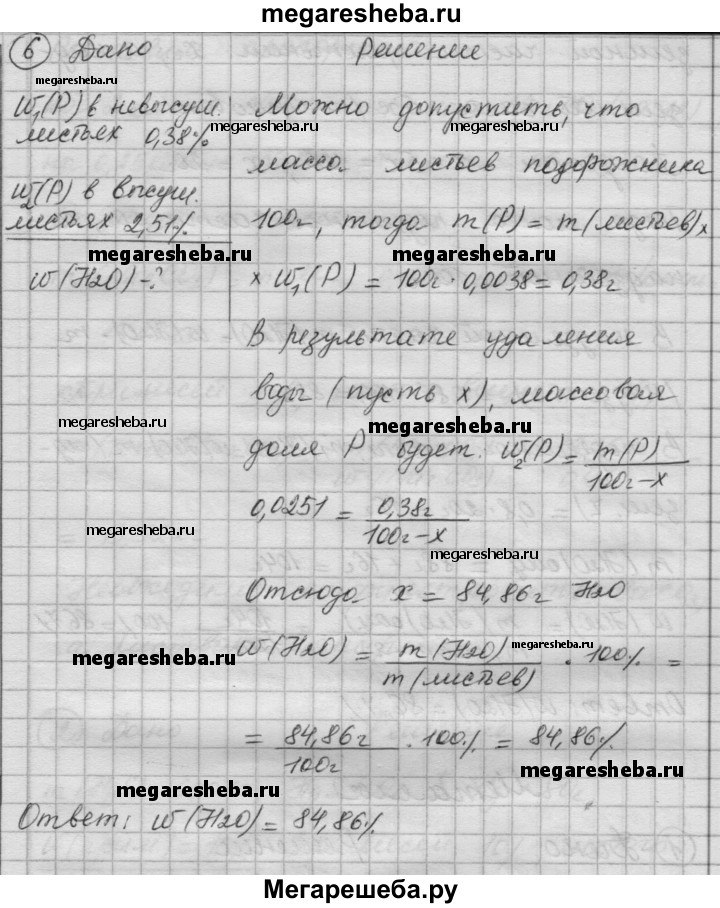 megaresheba.ru
6 Дано Решение
megaresheba.ru
W₁(P) в невысуш. Можно допустить, что
листьях 0,38% megaresheba.ru megaresheba.ru
масса листьев подорожника
W₂(P) в высуш.
листьях 2,51% 100г, тогда m(P) = m(листьев) ×
megaresheba.ru megaresheba.ru
W(H2O) - ? × W₁(P) = 100г · 0,0038 = 0,38г
В результате удаления
воды (пусть x), массовая
megaresheba.ru megaresheba.ru
доля P будет: W₂(P) = m(P) / 100г-x
0,0251 = 0,38г / 100г-x
megaresheba.ru
megaresheba.ru
Отсюда x = 84,86г H2O
megaresheba.ru
W(H2O) = m(H2O) / m(листьев) · 100% =
megaresheba.ru
= 84,86г / 100г · 100% = 84,86%
megaresheba.ru
megaresheba.ru
Ответ: W(H2O) = 84,86%
megaresheba.ru megaresheba.ru
Мегарешеба.ру